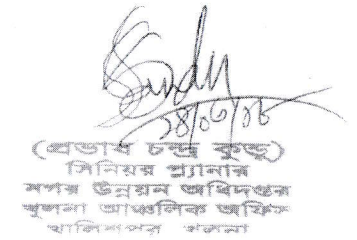 ২৪/০৬/১৮
(প্রভাষ চন্দ্র কুন্ডু)
সিনিয়র প্ল্যানার
নগর উন্নয়ন অধিদপ্তর
খুলনা আঞ্চলিক অফিস
খালিশপুর, খুলনা